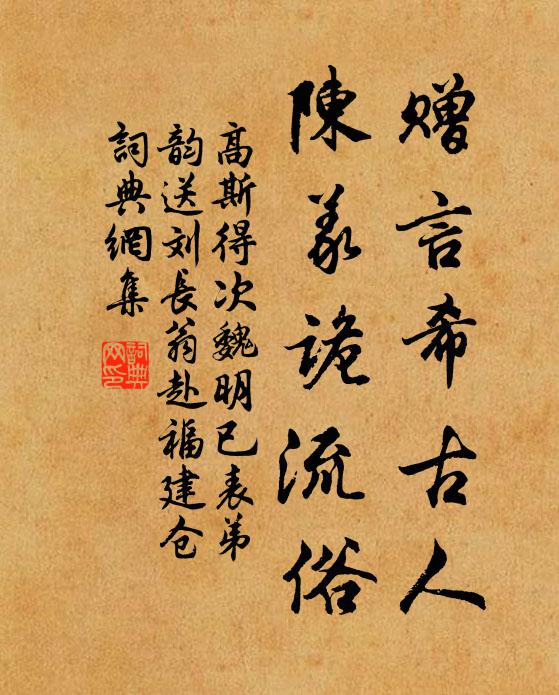 赠言希古人
陳義詭流俗
高斯得次魏明已表弟
韵送刘長翁赴福建仓
詞典網集
詞典
网印